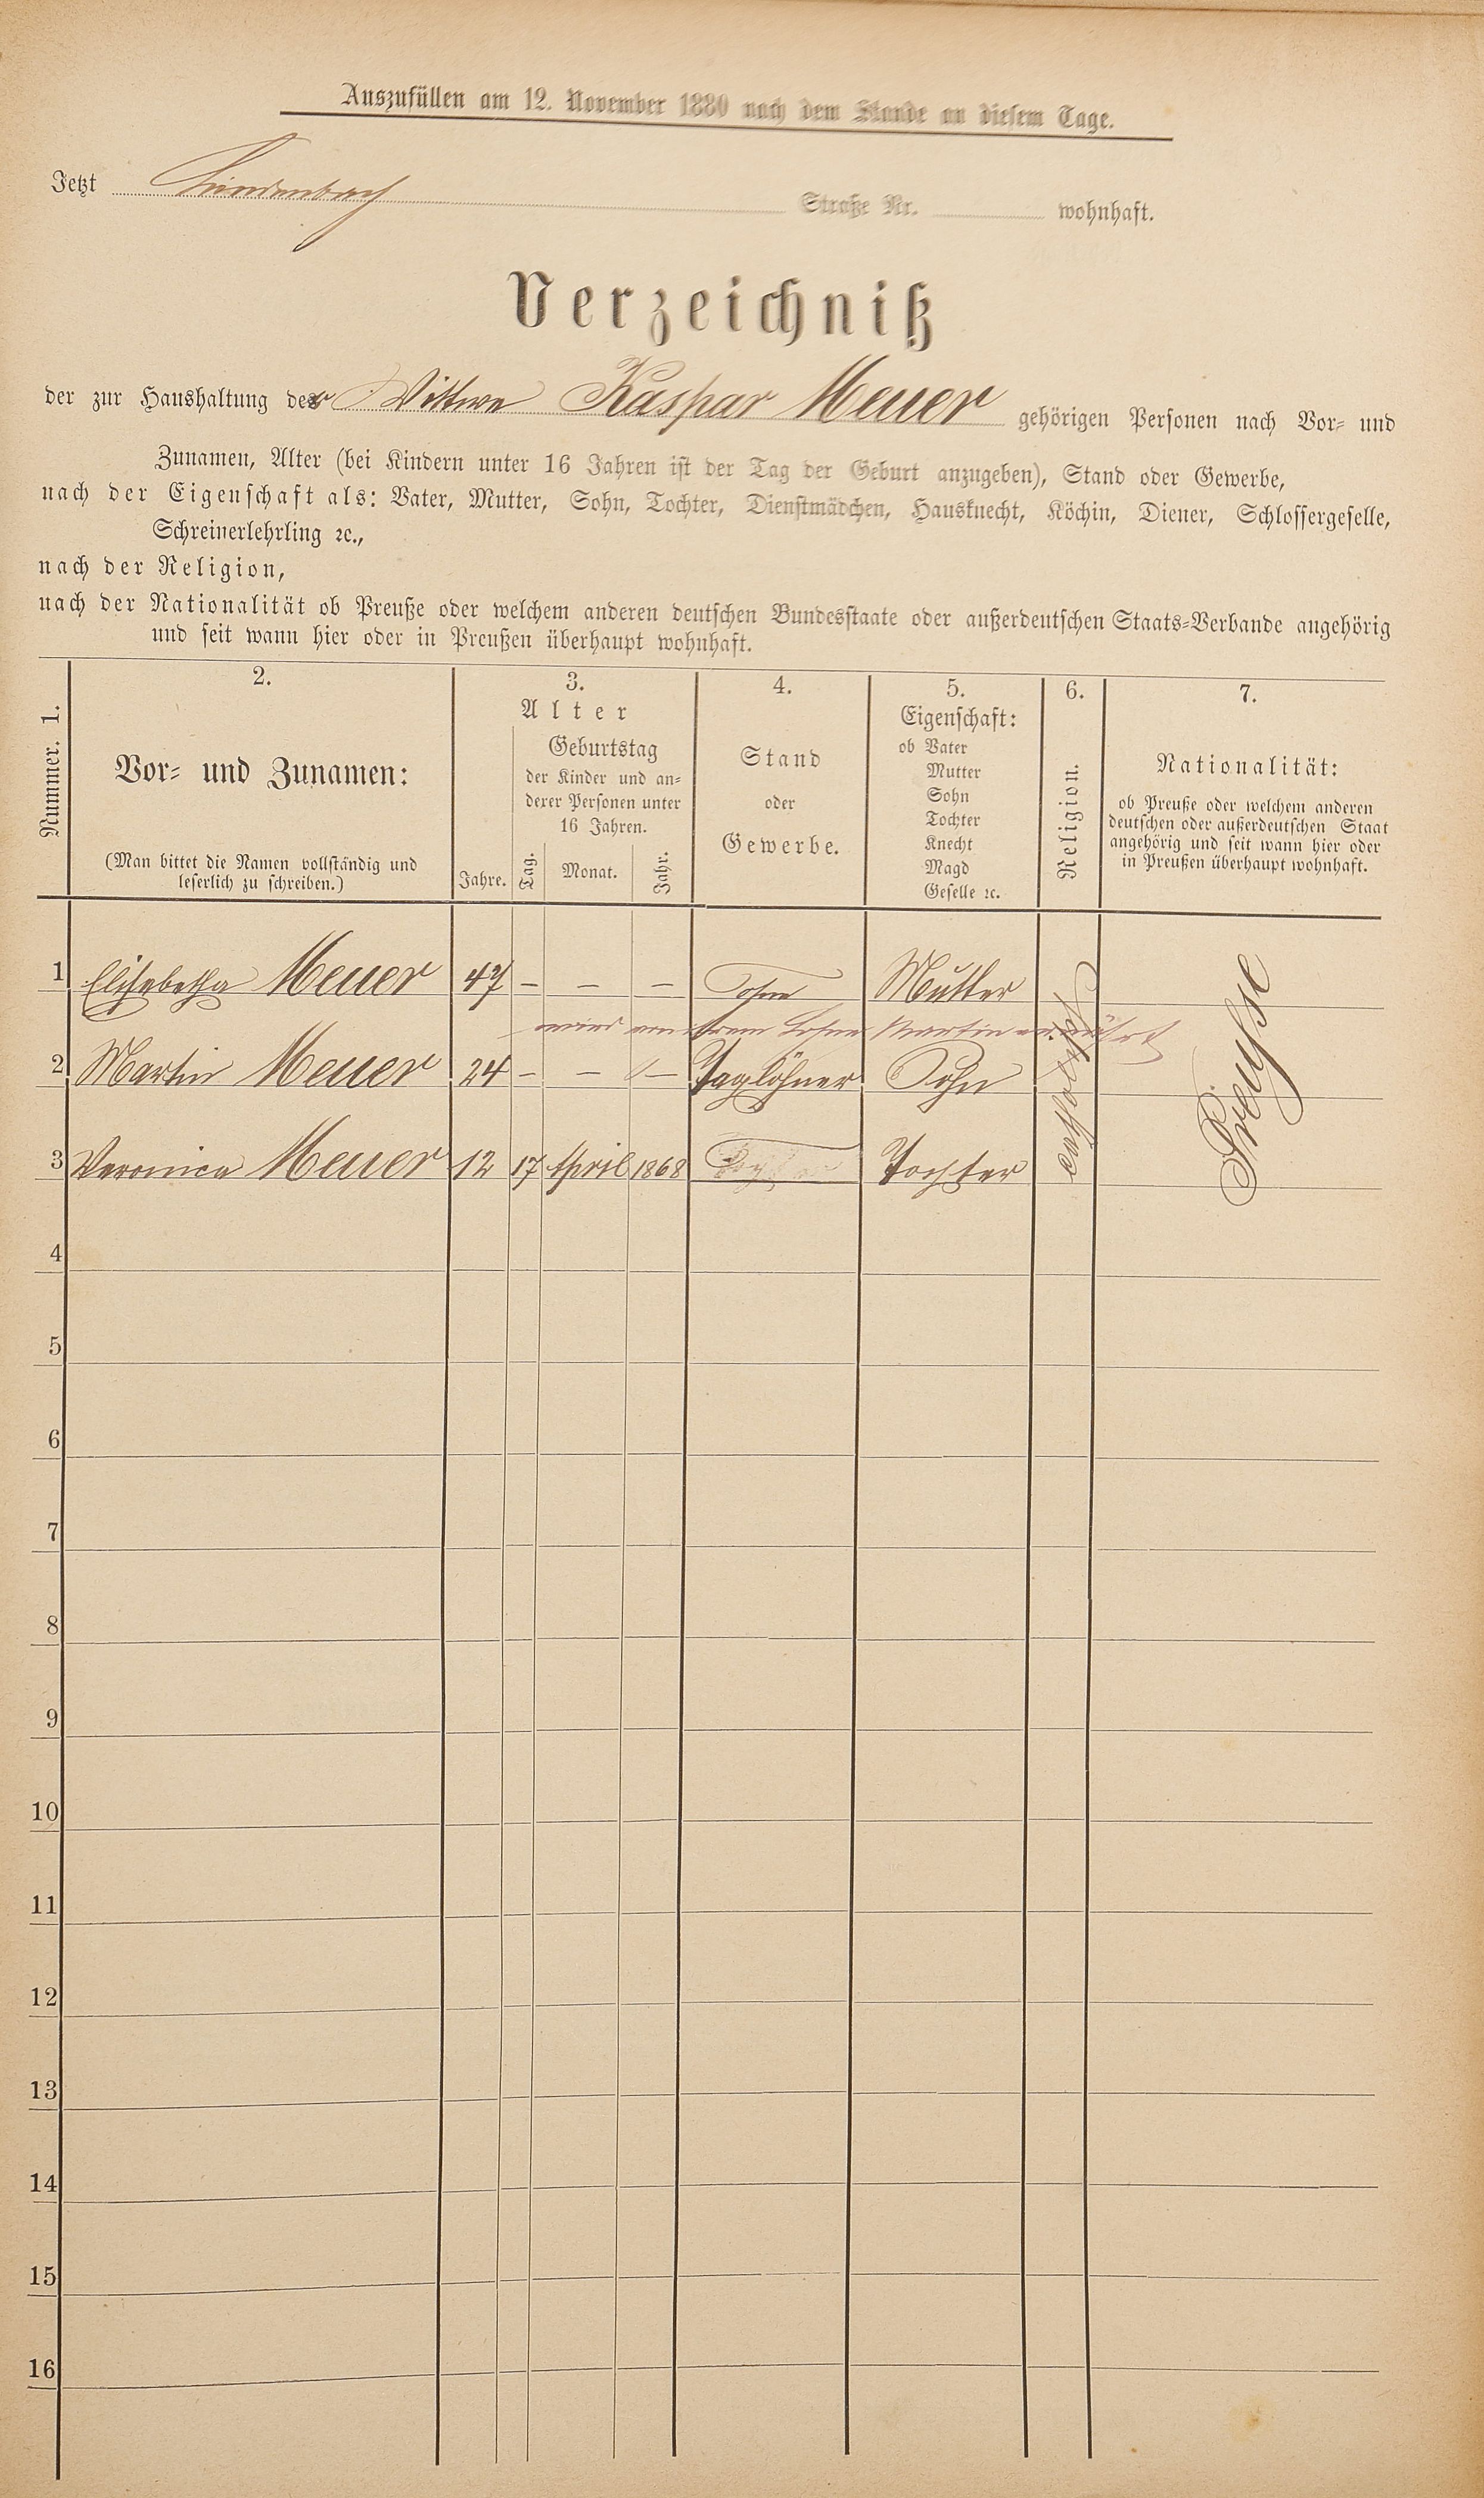 Auszufüllen am 12. November 1880 nach dem Stande an diesem Tage.
Jetzt Lindenbach Straße Nr. wohnhaft.
Verzeichniß
der zur Haushaltung der Wittwe Kaspar Meuer gehörigen Personen nach Vor- und
Zunamen, Alter (bei Kindern unter 16 Jahren ist der Tag der Geburt anzugeben), Stand oder Gewerbe,
nach der Eigenschaft als: Vater, Mutter, Sohn, Tochter, Dienstmädchen, Hausknecht, Köchin, Diener, Schlossergeselle,
Schreinerlehrling ꝛc.,
nach der Religion,
nach der Nationalität ob Preuße oder welchem anderen deutschen Bundesstaate oder außerdeutschen Staats-Verbande angehörig
und seit wann hier oder in Preußen überhaupt wohnhaft.
Nummer. 1.
2.
Vor- und Zunamen:
(Man bittet die Namen vollständig und
leserlich zu schreiben.)
3.
Alter
Jahre.
Geburtstag
der Kinder und an-
derer Personen unter
16 Jahren.
Tag. Monat. Jahr.
4.
Stand
oder
Gewerbe.
5.
Eigenschaft:
ob Vater
Mutter
Sohn
Tochter
Knecht
Magd
Geselle ꝛc.
6.
Religion.
7.
Nationalität:
ob Preuße oder welchem anderen
deutschen oder außerdeutschen Staat
angehörig und seit wann hier oder
in Preußen überhaupt wohnhaft.
1 Elisabetha Meuer 47 – – – Ohne Mutter
wird von ihrem Sohne Martin ernährt
2 Martin Meuer 24 – – – Taglöhner Sohn
3 Veronica Meuer 12 17 April 1868 Tochter
catholisch
Preuße
4
5
6
7
8
9
10
11
12
13
14
15
16